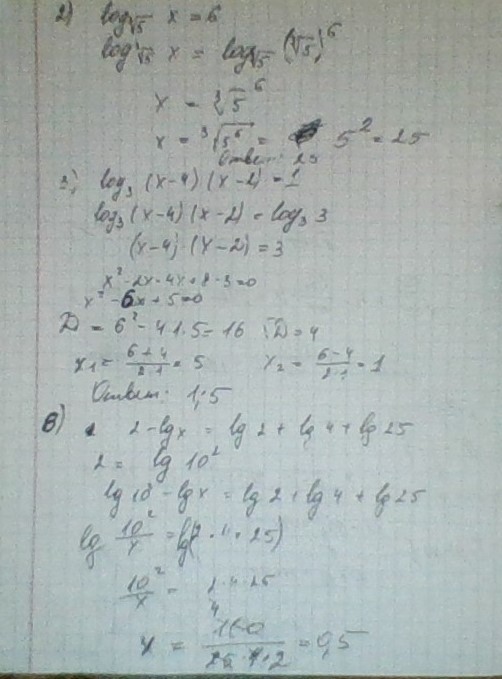 2) log_∛5 x = 6
log_∛5 x = log_∛5 (∛5)^6
x = ∛5^6
x = ∛(5^6) = 5^2 = 25
Ответ: 25
3) log_3 (x-4)(x-2) = 1
log_3 (x-4)(x-2) = log_3 3
(x-4)·(x-2) = 3
x^2-2x-4x+8-3=0
x^2-6x+5=0
D = 6^2-4·1·5=16 √D=4
x_1 = (6+4)/(2·1) = 5 x_2 = (6-4)/(2·1) = 1
Ответ: 1; 5
6) 2-lg x = lg 2 + lg 4 + lg 25
2 = lg 10^2
lg 10^2 - lg x = lg 2 + lg 4 + lg 25
lg 10^2/x = lg(2·4·25)
10^2/x = 2·4·25
x = 100/(25·4·2) = 0,5